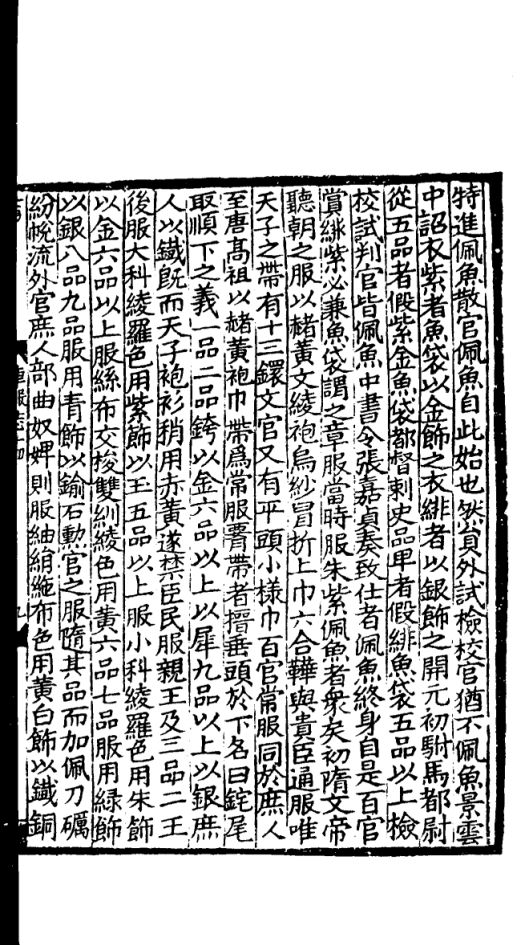 特進佩魚散官佩魚自此始也然貟外試檢校官猶不佩魚景雲
中詔衣紫者魚袋以金飾之衣緋者以銀飾之開元初駙馬都尉
從五品者假紫金魚袋都督刺史品卑者假緋魚袋五品以上檢
校試判官皆佩魚中書令張嘉貞奏致仕者佩魚終身自是百官
賞緋紫必兼魚袋謂之章服當時服朱紫佩魚者衆矣初隋文帝
聽朝之服以赭黃文綾袍烏紗冒折上巾六合鞾與貴臣通服唯
天子之帶有十三鐶文官又有平頭小樣巾百官常服同於庶人
至唐高祖以赭黃袍巾帶爲常服署帶者搢垂頭於下名曰鉈尾
取順下之義一品二品銙以金六品以上以犀九品以上以銀庶
人以鐵旣而天子袍衫稍用赤黃遂禁臣民服親王及三品二王
後服大科綾羅色用紫飾以玉五品以上服小科綾羅色用朱飾
以金六品以上服絲布交梭雙紃綾色用黃六品七品服用緑飾
以銀八品九品服用青飾以鍮石勲官之服隨其品而加佩刀礪
紛帨流外官庶人部曲奴婢則服紬絹絁布色用黃白飾以鐵銅
車服志十四
九